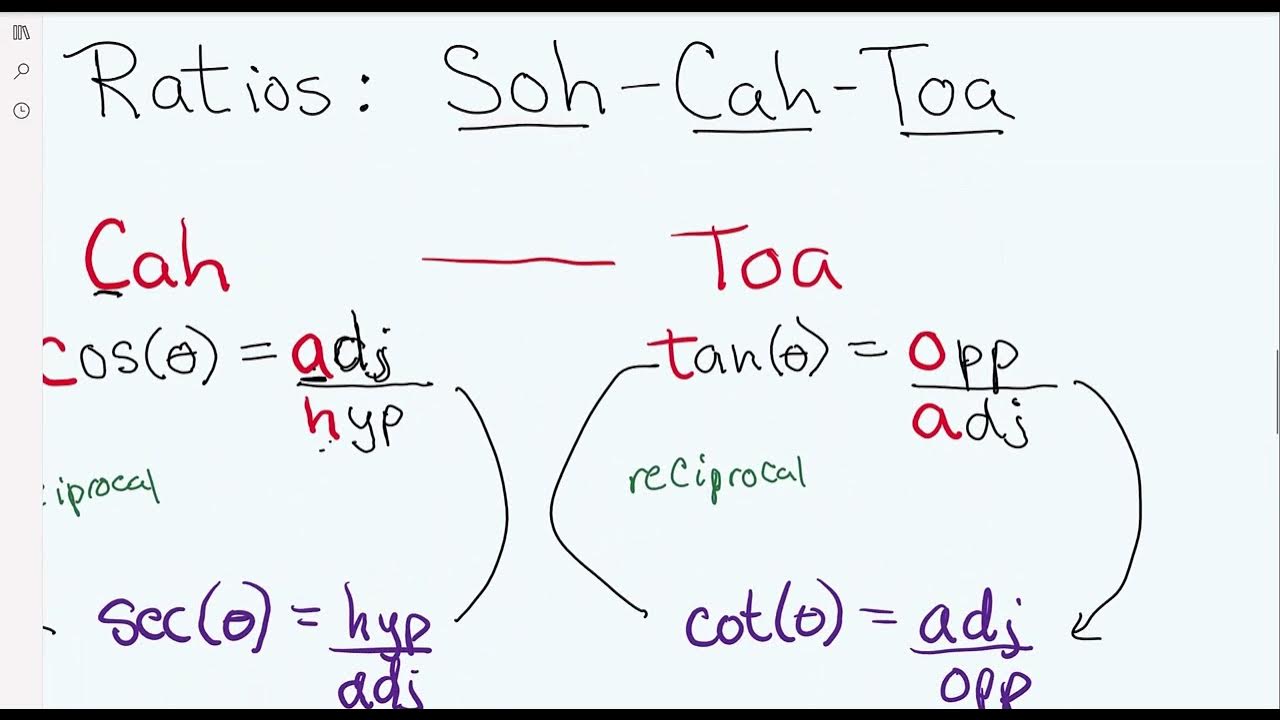 Ratios: Soh-Cah-Toa
Cah — Toa
cos(θ) = adj/hyp
tan(θ) = opp/adj
ciprocal
reciprocal
sec(θ) = hyp/adj
cot(θ) = adj/opp